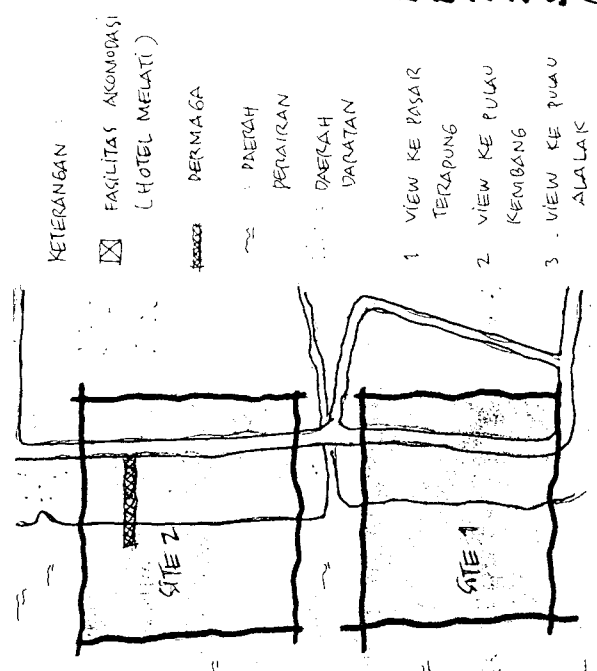 KETERANGAN :
FASILITAS AKOMODASI
(HOTEL MELATI)
DERMAGA
: DAERAH
PERAIRAN
: DAERAH
DARATAN
1 VIEW KE PASAR
TERAPUNG
2 VIEW KE PULAU
KEMBANG
3 . VIEW KE PULAU
ALALAK
SITE 2
SITE 1